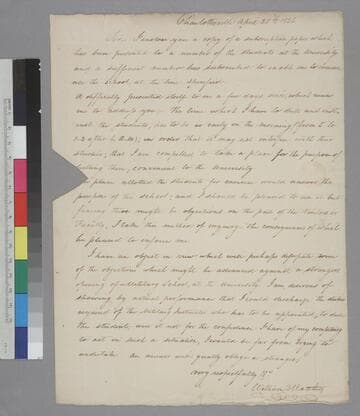 Charlottesville April 25th 182
Sir, I enclose you a copy of a subscription paper which
has been presented to a number of the students at the University
and a sufficient number has subscribed to enable me to commence
the School, at the time
A difficulty presented itself to me a few days since, which causes
me to trouble you. The time which I have to drill and instruct
the students, has to be early in the morning (from 5 to
7 1/2 o'clock A.M.); in order that it may not interfere with their
studies; that I am compelled to take a place for the purpose of
drilling them, convenient to the University
The place allotted the students for exercise would answer the
purpose of the school; and I should be pleased to use it but
fearing there might be objections on the part of the Visitors or
Faculty, I take this method of inquiring the consequences of which
be pleased to inform me.
I have an object in view which will perhaps mitigate some
of the objections which might be advanced against
of a Military School, at the University. I am desirous of
showing by actual performance that I could discharge the duties
required of the Military Instructor who has to be appointed, to drill
the students, were it not for the confidence I have of my competency
to act in such a situation, I would be far from trying to
undertake. An answer will greatly oblige a stranger,
very respectfully &c
William Matthews